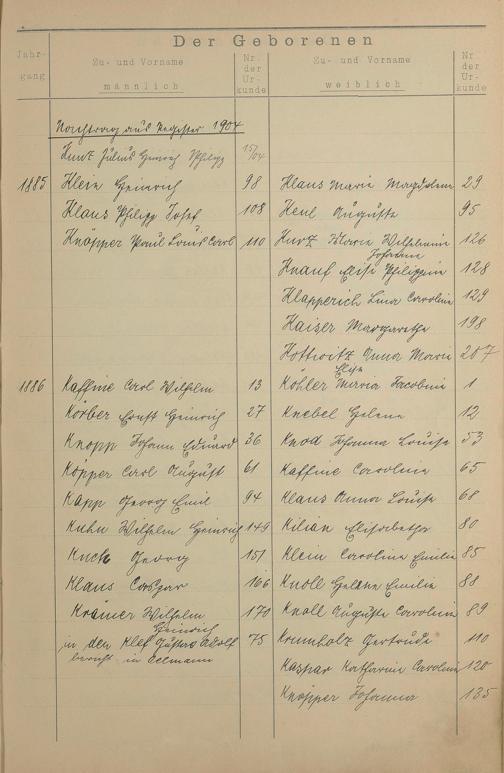 Der Geborenen
Jahr-
gang
Zu- und Vorname
männlich
Nr.
der
Ur-
kunde
Zu- und Vorname
weiblich
Nr.
der
Ur-
kunde
Nachtrag aus Register 1904
Kurz Julius Heinrich Philipp 15/04
1885 Klein Heinrich 98 Klaus Maria Magdalena 29
Klaus Philipp Josef 108 Keul Auguste 95
Knöpper Paul Louis Carl 110 Kurz Maria Wilhelmine 126
Johanna
Knauf Elise Philippin 128
Klapperich Lina Caroline 129
Kaiser Margarethe 198
Anna Maria 207
Elise
1886 Kaffine Carl Wilhelm 13 Köhler Maria Jacobine 1
Körber Ernst Heinrich 27 Knebel Helene 12
Knopp Johann Eduard 36 Knod Johanna Louise 53
Köpper Carl August 61 Kaffine Caroline 65
Kapp Georg Emil 94 Klaus Anna Louise 68
Kuhn Wilhelm Heinrich 149 Kilian Elisabetha 80
Kuch Georg 151 Klein Caroline Emilie 85
Klaus Caspar 166 Knoll Helene Emilie 88
Krämer Wilhelm 170 Knoll Auguste Caroline 89
Heinrich
in der Klef Gustav Adolf 75 Krumholz Gertrude 110
in
Kaspar Katharina Caroline 120
Knöpper Johanna 135